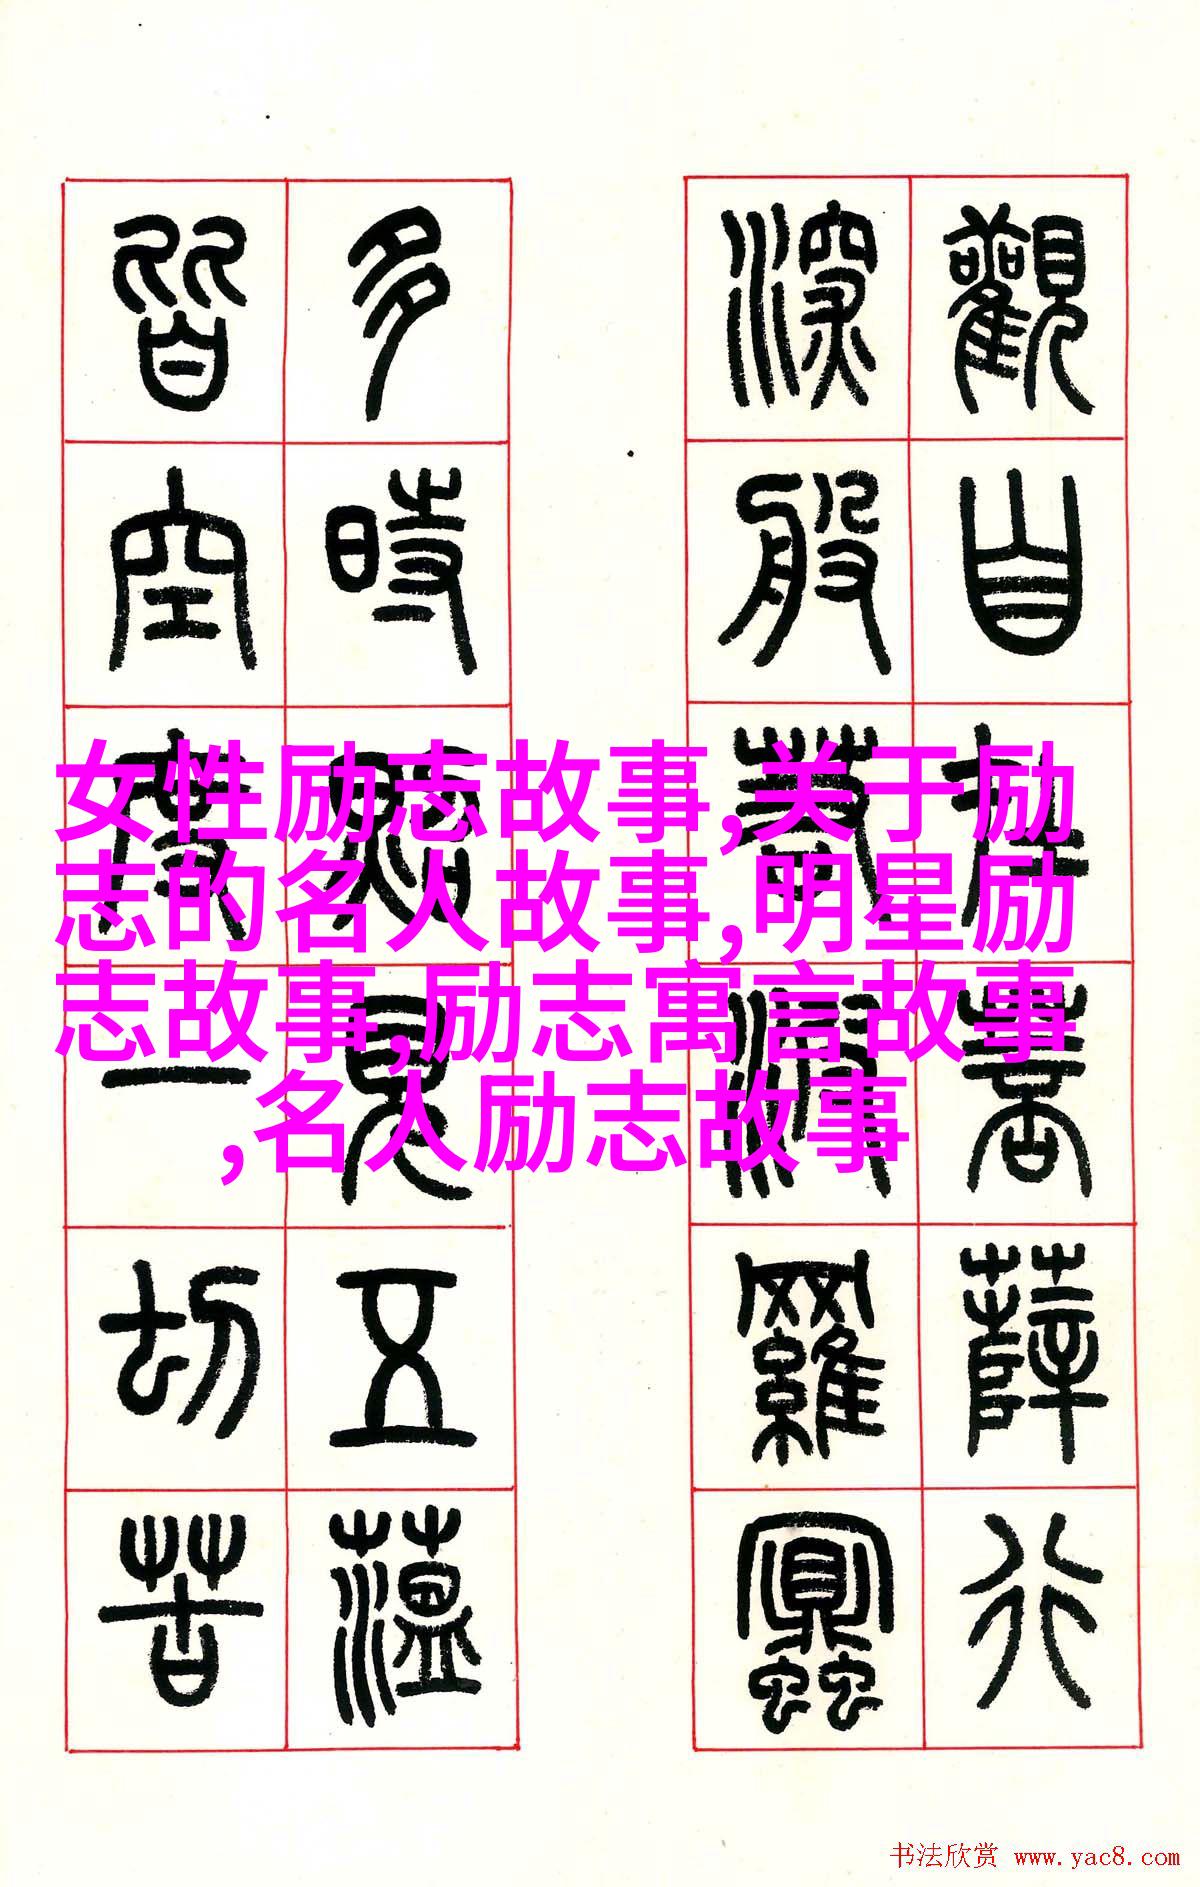 觀自在菩薛行
深般若波羅蜜
多時照見五薀
皆空度一切苦
女性励志故事,关于励
志的名人故事,明星励
志故事,励志寓言故事
,名人励志故事
书法欣赏 www.yac8.com